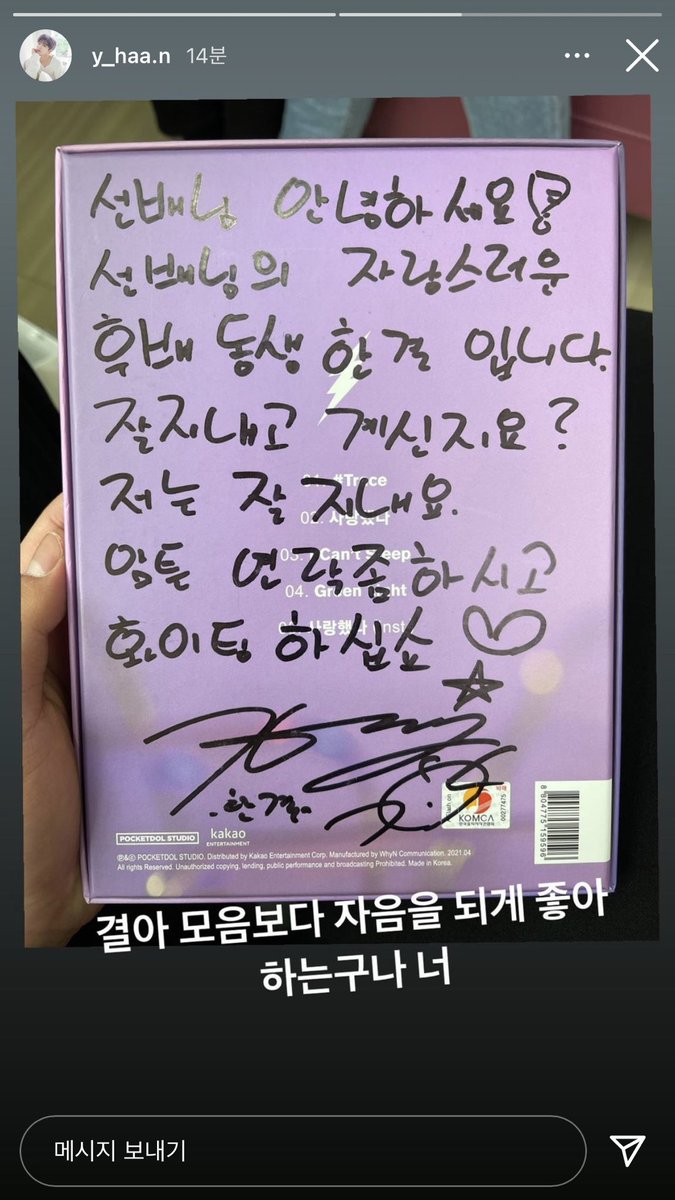 y_haa.n 14분
선배님 안녕하세요!
선배님의 자랑스러운
후배 동생 한결 입니다.
잘지내고 계신지요?
#Trace
저는 잘 지내요.
02. 사랑했다
암튼 연락좀 하시고
Can't Sleep
04. Green Light
화이팅 하십쇼
사랑했다 Inst
-한결-
KOMCA
00277475
8 804775 159596
POCKETDOL STUDIO kakao
ENTERTAINMENT
℗&© POCKETDOL STUDIO. Distributed by Kakao Entertainment Corp. Manufactured by WhyN Communication. 2021.04
All rights Reserved. Unauthorized copying, lending, public performance and broadcasting Prohibited. Made in Korea.
결아 모음보다 자음을 되게 좋아
하는구나 너
메시지 보내기